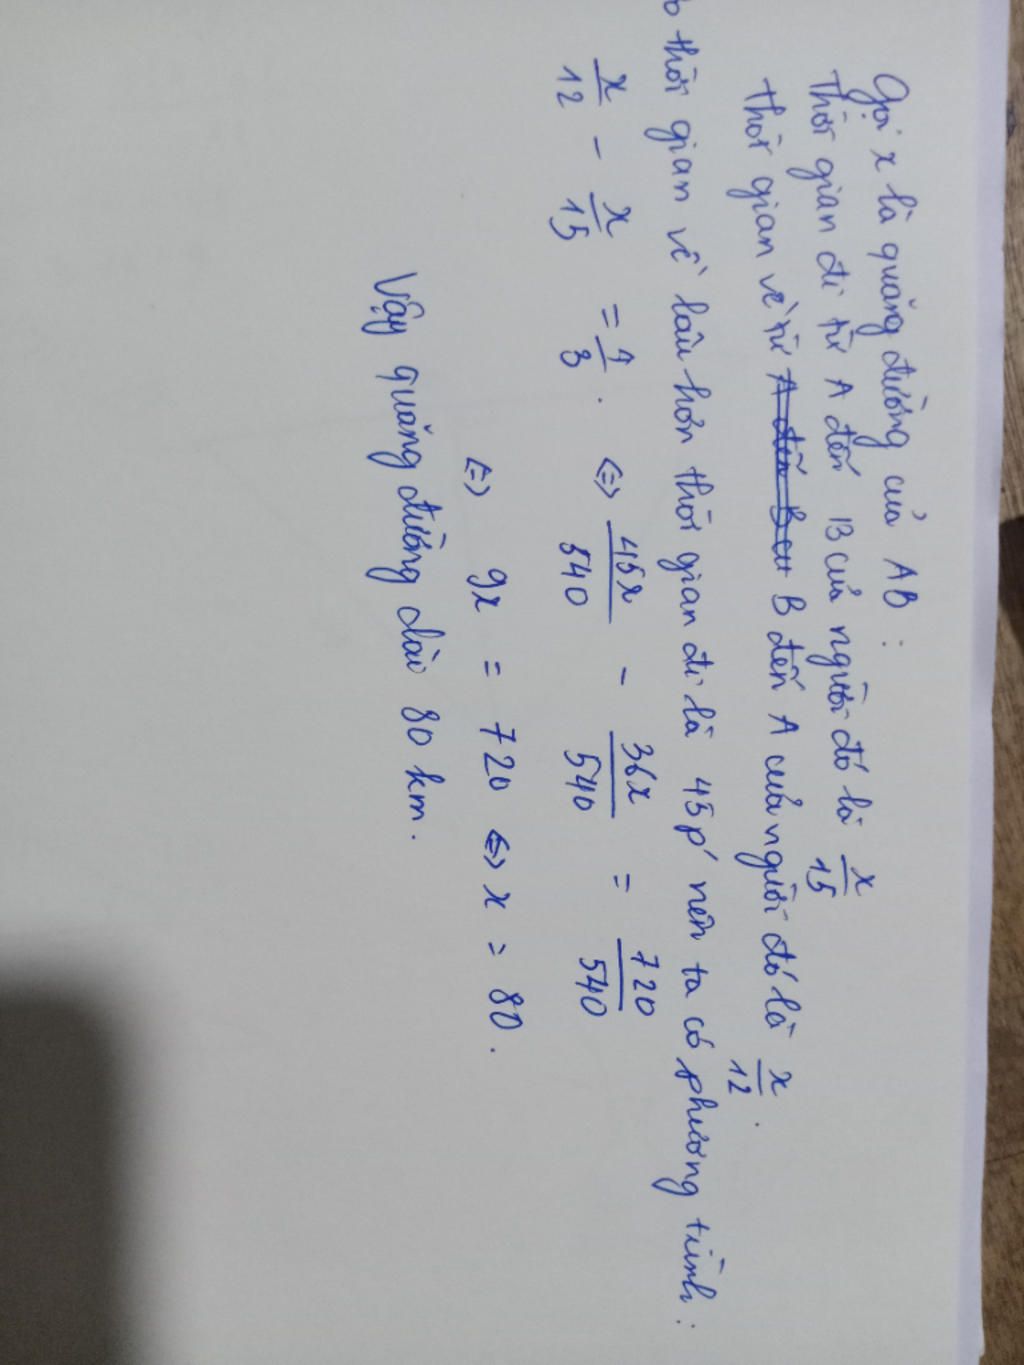 Gọi x là quãng đường của AB :
Thời gian đi từ A đến B của người đó là x/15
Thời gian về từ B đến A của người đó là x/12 .
thời gian về lâu hơn thời gian đi là 45p' nên ta có phương trình :
x/12 - x/15 = 4/3 . <=> 45x/540 - 36x/540 = 720/540
<=> 9x = 720 <=> x = 80 .
Vậy quãng đường dài 80 km .